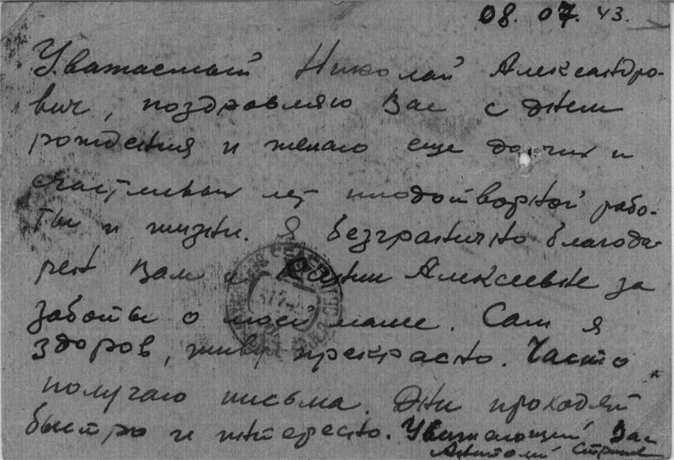 08.07.43.
Уважаемый Николай Александро-
вич, поздравляю Вас с днем
рождения и желаю еще долгих и
счастливых лет плодотворной рабо-
ты и жизни. Я безгранично благода-
рен Вам и Алексеевне за
заботы о моей маме. Сам я
здоров, живу прекрасно. Часто
получаю письма. Дни проходят
быстро и интересно. Уважающий Вас
Анатолий